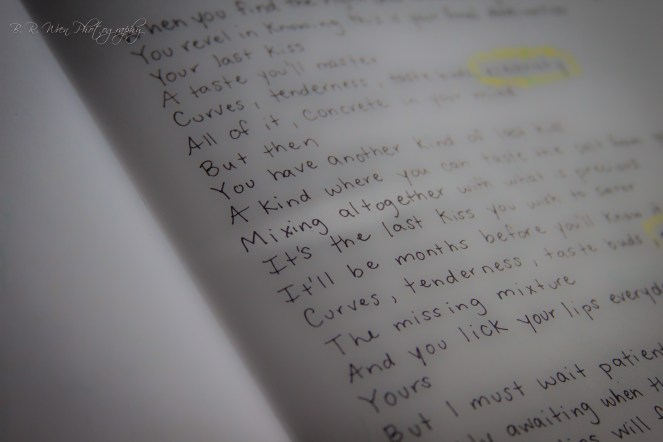 B. R. Wen Photography
When you find the
You revel in knowing this is your
Your last kiss
A taste you'll master
Curves, tenderness, taste buds,
All of it, concrete in your mind
But then
You have another kind of last kiss
A kind where you can taste the salt from
Mixing altogether with what is precious
It's the last kiss you wish to savor
It'll be months before you'll know
Curves, tenderness, taste buds,
The missing mixture
And you lick your lips everyday
Yours
But I must wait patient
awaiting when
will